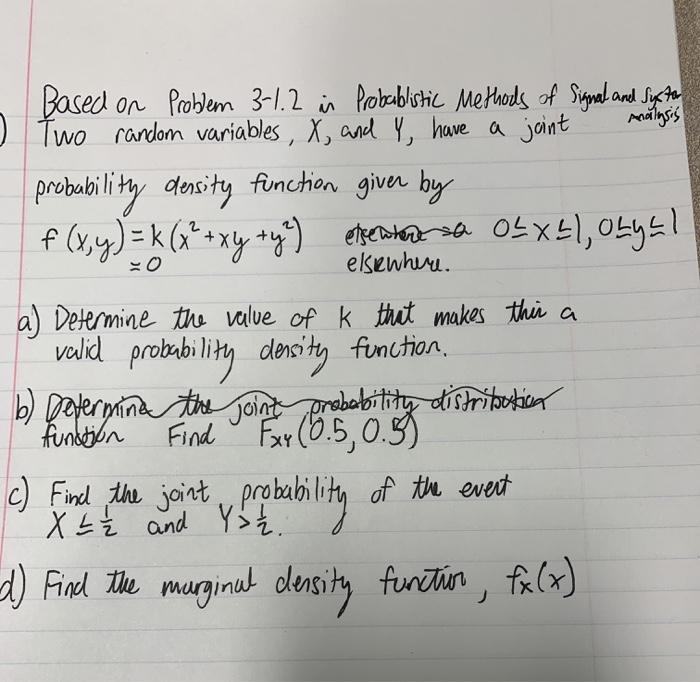 Based on Problem 3-1.2 in Probablistic Methods of Signal and System Analysis
) Two random variables, X, and Y, have a joint
probability density function given by
f(x,y) = k(x² + xy + y²) 0≤x≤1, 0≤y≤1
= 0 elsewhere.
a) Determine the value of k that makes this a
valid probability density function.
b) Determine the joint probability distribution
function Find F_XY(0.5, 0.5)
c) Find the joint probability of the event
X ≤ 1/2 and Y > 1/2.
d) Find the marginal density function, fx(x)